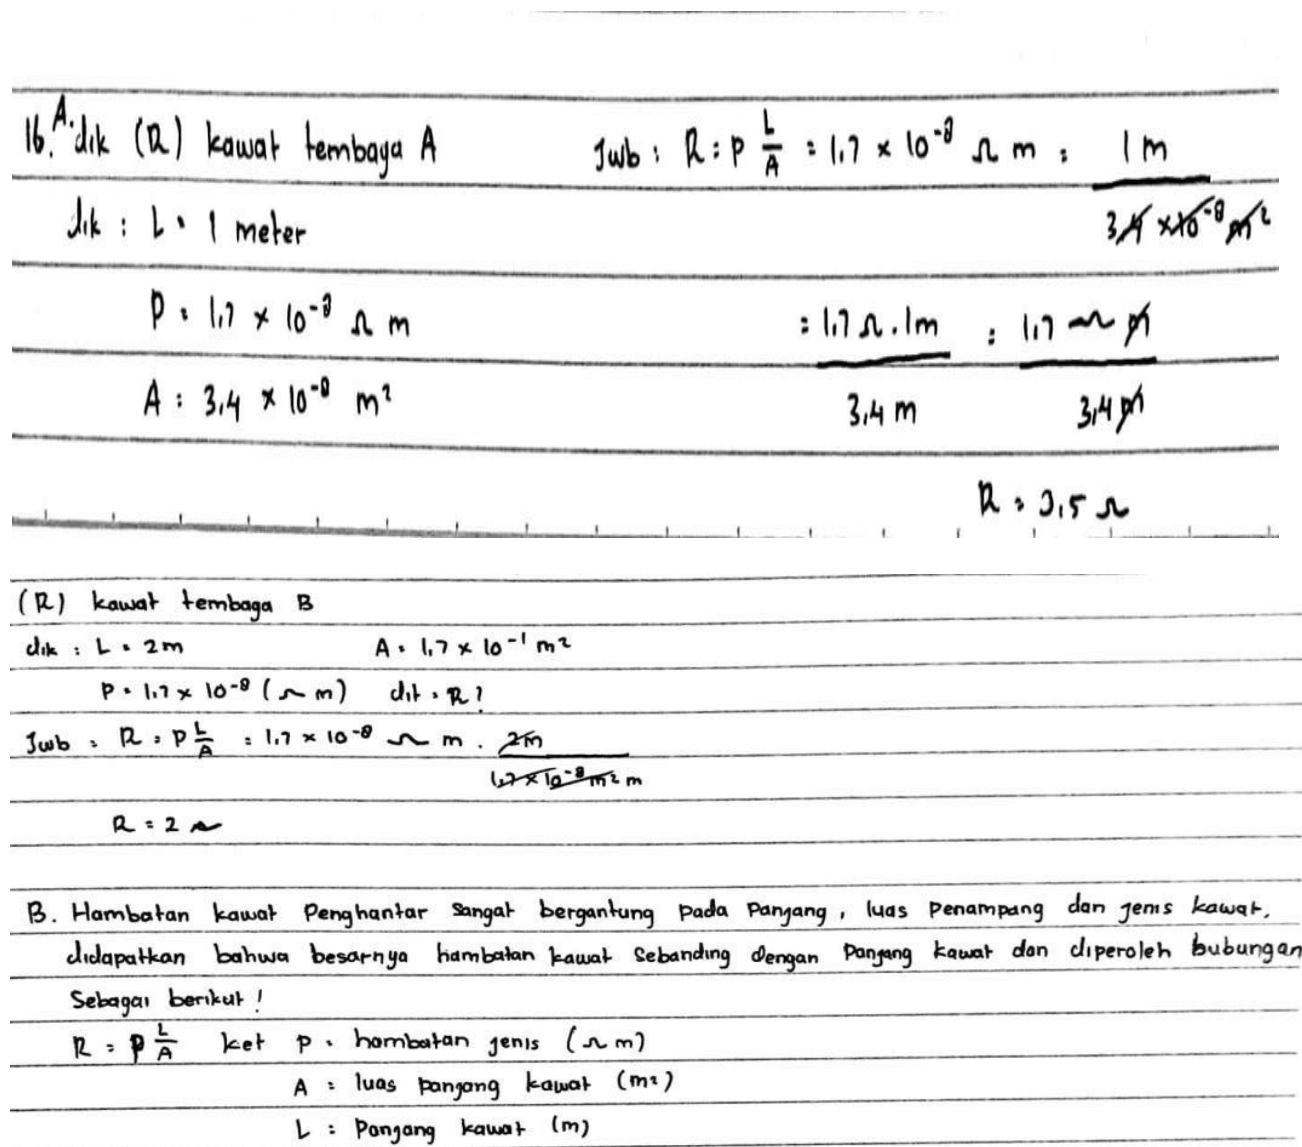 16. A. dik (R) kawat tembaga A Jwb : R = ρ L/A = 1,7 × 10⁻⁸ Ω m = 1 m / 3,4 × 10⁻⁸ m²
dik : L = 1 meter
ρ = 1,7 × 10⁻⁸ Ω m = 1,7 Ω . 1m / 3,4 m = 1,7 Ω m / 3,4 m
A = 3,4 × 10⁻⁸ m²
R = 0,5 Ω
(R) kawat tembaga B
dik : L = 2m A = 1,7 × 10⁻¹ m²
ρ = 1,7 × 10⁻⁸ (Ω m) dit = R?
Jwb = R = ρ L/A = 1,7 × 10⁻⁸ Ω m . 2m / 1,7 × 10⁻⁸ m² m
R = 2 Ω
B. Hambatan kawat Penghantar sangat bergantung pada Panjang, luas Penampang dan jenis kawat,
didapatkan bahwa besarnya hambatan kawat sebanding dengan Panjang kawat dan diperoleh bubungan
Sebagai berikut !
R = ρ L/A ket ρ = hambatan jenis (Ω m)
A = luas panjang kawat (m²)
L : Panjang kawat (m)